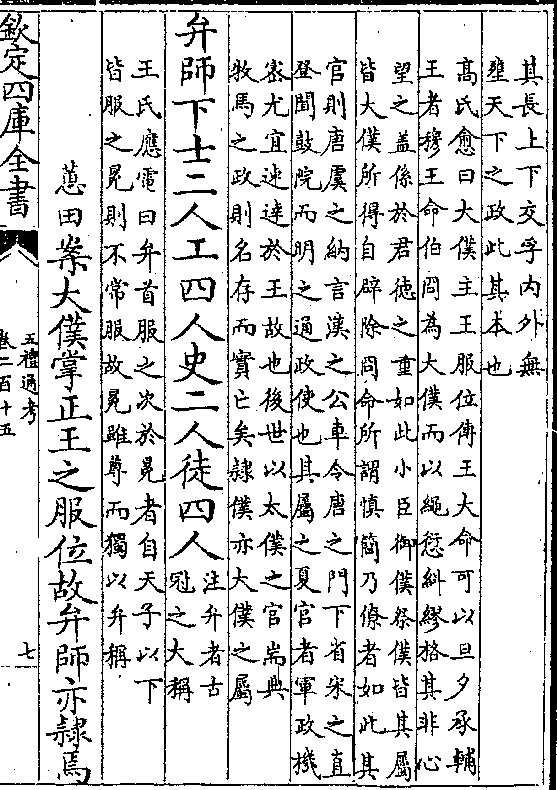 其長上下交孚内外無
壅天下之政此其本也
髙氏愈曰大僕主王服位傳王大命可以旦夕承輔
王者穆王命伯冏為大僕而以繩愆糾繆格其非心
望之盖係於君徳之重如此小臣御僕祭僕皆其屬
皆大僕所得自辟除冏命所謂慎簡乃僚者如此其
官則唐虞之納言漢之公車令唐之門下省宋之直
登聞鼓院而明之通政使也其屬之夏官者軍政機
宻尤宜速達於王故也後世以太僕之官耑典
牧馬之政則名存而實亡矣隷僕亦大僕之屬
弁師下士二人工四人史二人徒四人
注弁者古
冠之大稱
王氏應電曰弁首服之次於冕者自天子以下
皆服之冕則不常服故冕雖尊而獨以弁稱
蕙田案大僕掌正王之服位故弁師亦隷焉
欽定四庫全書
五禮通考
卷二百十五
七